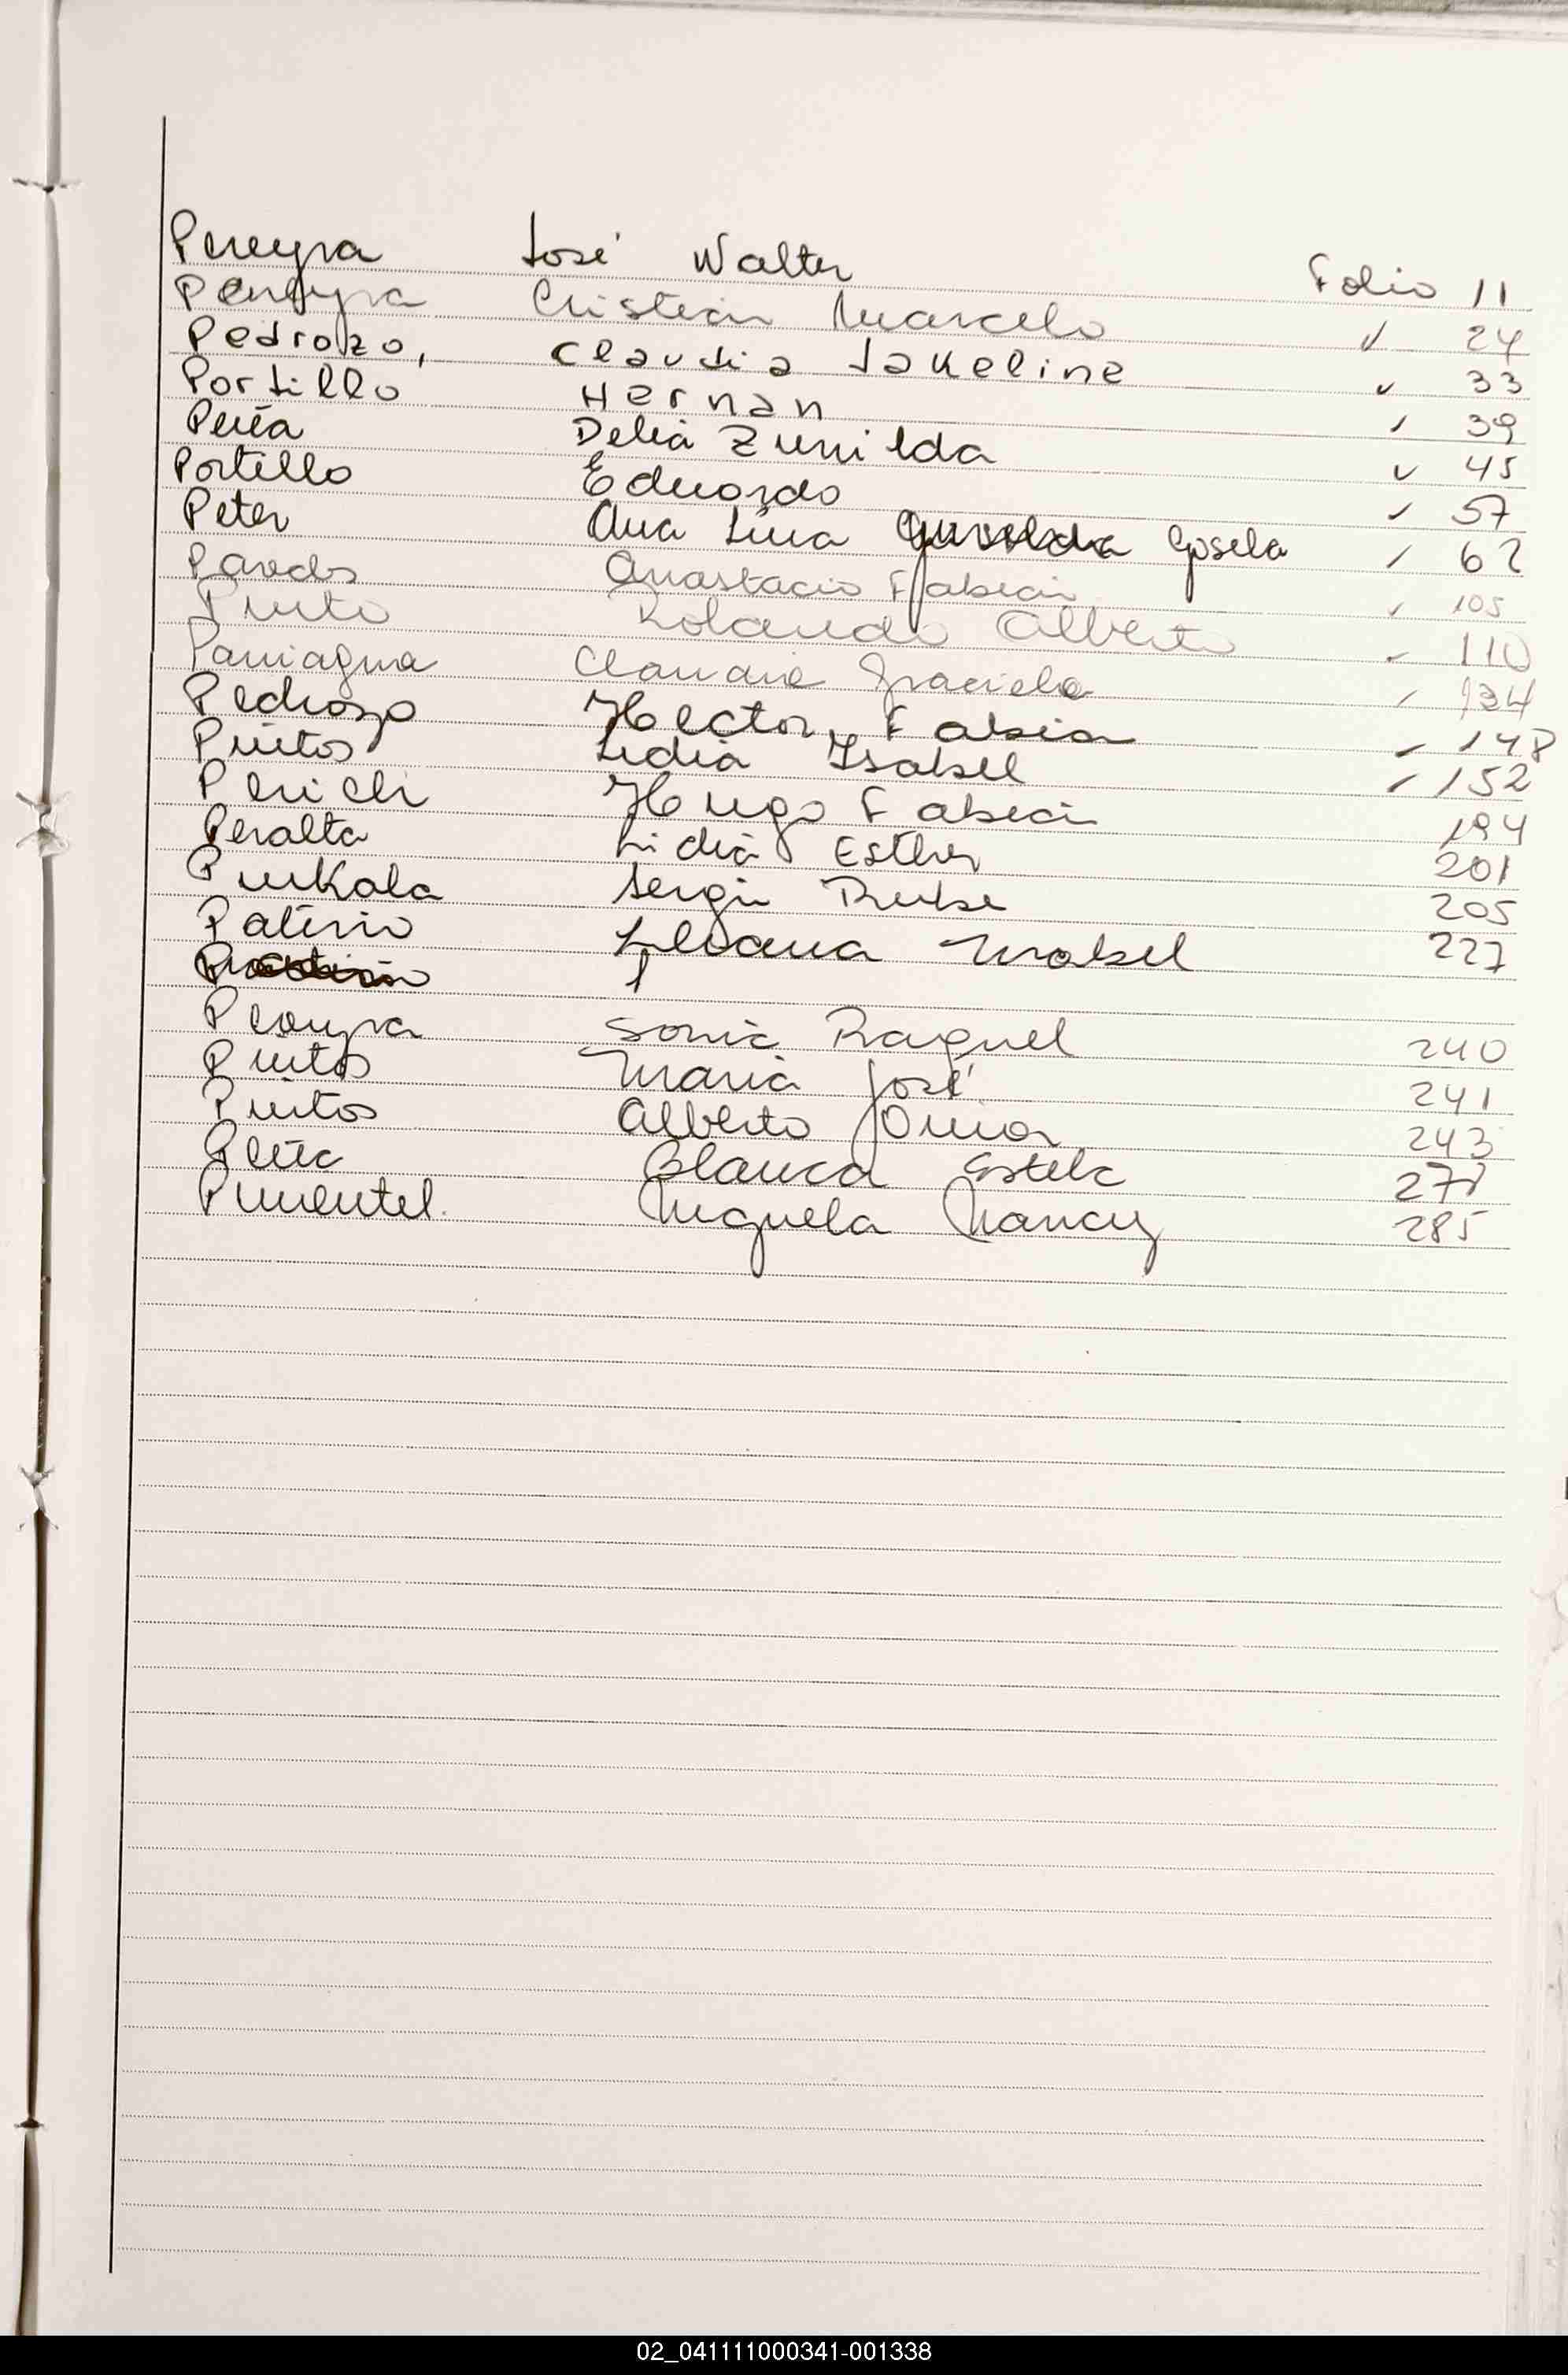 Pereyra José Walter Folio 11
Pereyra Cristian Marcelo ✓ 24
Pedrozo, Claudia Jakeline ✓ 33
Portillo Hernan ✓ 39
Peña Delia Zunilda ✓ 45
Portillo Eduardo ✓ 57
Peter Ana Lina Griselda Gisela ✓ 62
Paredes Anastacio Fabian ✓ 105
Pinto Rolando Alberto ✓ 110
Paniagua Claudia Graciela ✓ 134
Pedrozo Hector Fabian ✓ 148
Pintos Lidia Isabel ✓ 152
Hugo Fabian 194
Peralta Lidia Esther 201
Sergio 205
Patiño Liliana Mabel 227
Pereyra Sonia Raquel 240
Pintos Maria José 241
Pintos Alberto Omar 243
Peña Blanca Estela
Pimentel Miguela Nancy 285
02_041111000341-001338